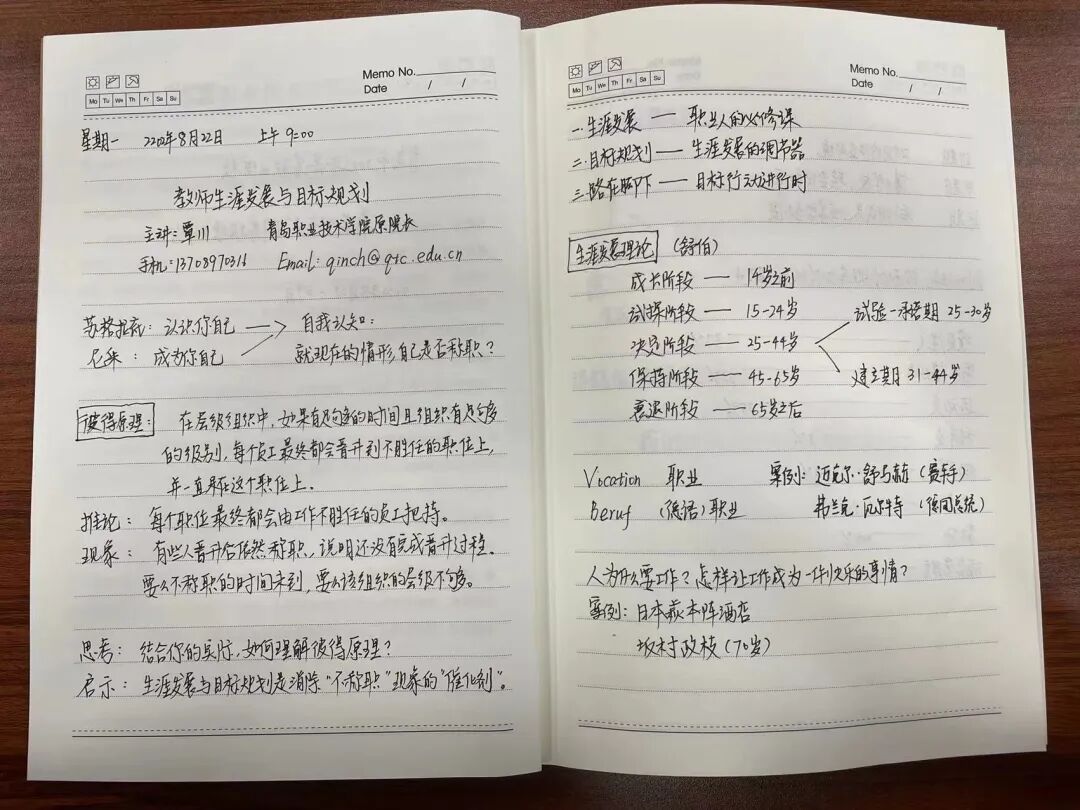 Memo No.
Mo Tu We Th Fr Sa Su
Date / /
星期一 2202年8月22日 上午9:00
教师生涯发展与目标规划
主讲:覃川 青岛职业技术学院原院长
手机:13708970316 Email: qinch@qtc.edu.cn
苏格拉底:认识你自己 → 自我认知:
尼采:成为你自己 就现在的情形,自己是否称职?
彼得原理: 在层级组织中,如果有足够的时间且组织有足够多
的级别,每个员工最终都会晋升到不胜任的职位上,
并一直呆在这个职位上。
推论:每个职位最终都会由工作不胜任的员工把持。
现象:有些人晋升后依然称职,说明还没有完成晋升过程。
要么不称职的时间未到,要么该组织的层级不够。
思考:结合你的实际,如何理解彼得原理?
启示:生涯发展与目标规划是消除“不称职”现象的“催化剂”。
Memo No.
Mo Tu We Th Fr Sa Su
Date / /
一.生涯发展——职业人的必修课
二.目标规划——生涯发展的调节器
三.路在脚下——目标行动进行时
生涯发展理论(舒伯)
成长阶段——14岁之前
试探阶段——15-24岁 试验-承诺期 25-30岁
决定阶段——25-44岁
保持阶段——45-65岁 建立期 31-44岁
衰退阶段——65岁之后
Vocation 职业 案例:迈克尔·舒马赫(赛车手)
Beruf (德语)职业 弗兰克·瓦尔特(德国总统)
人为什么要工作?怎样让工作成为一件快乐的事情?
案例:日本萩本阵酒店
坂村政枝(70岁)